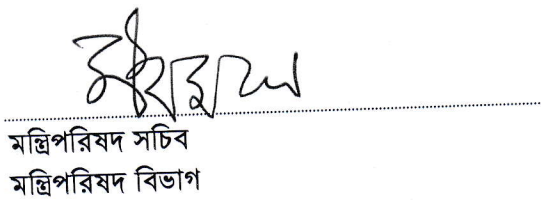 মন্ত্রিপরিষদ সচিব
মন্ত্রিপরিষদ বিভাগ